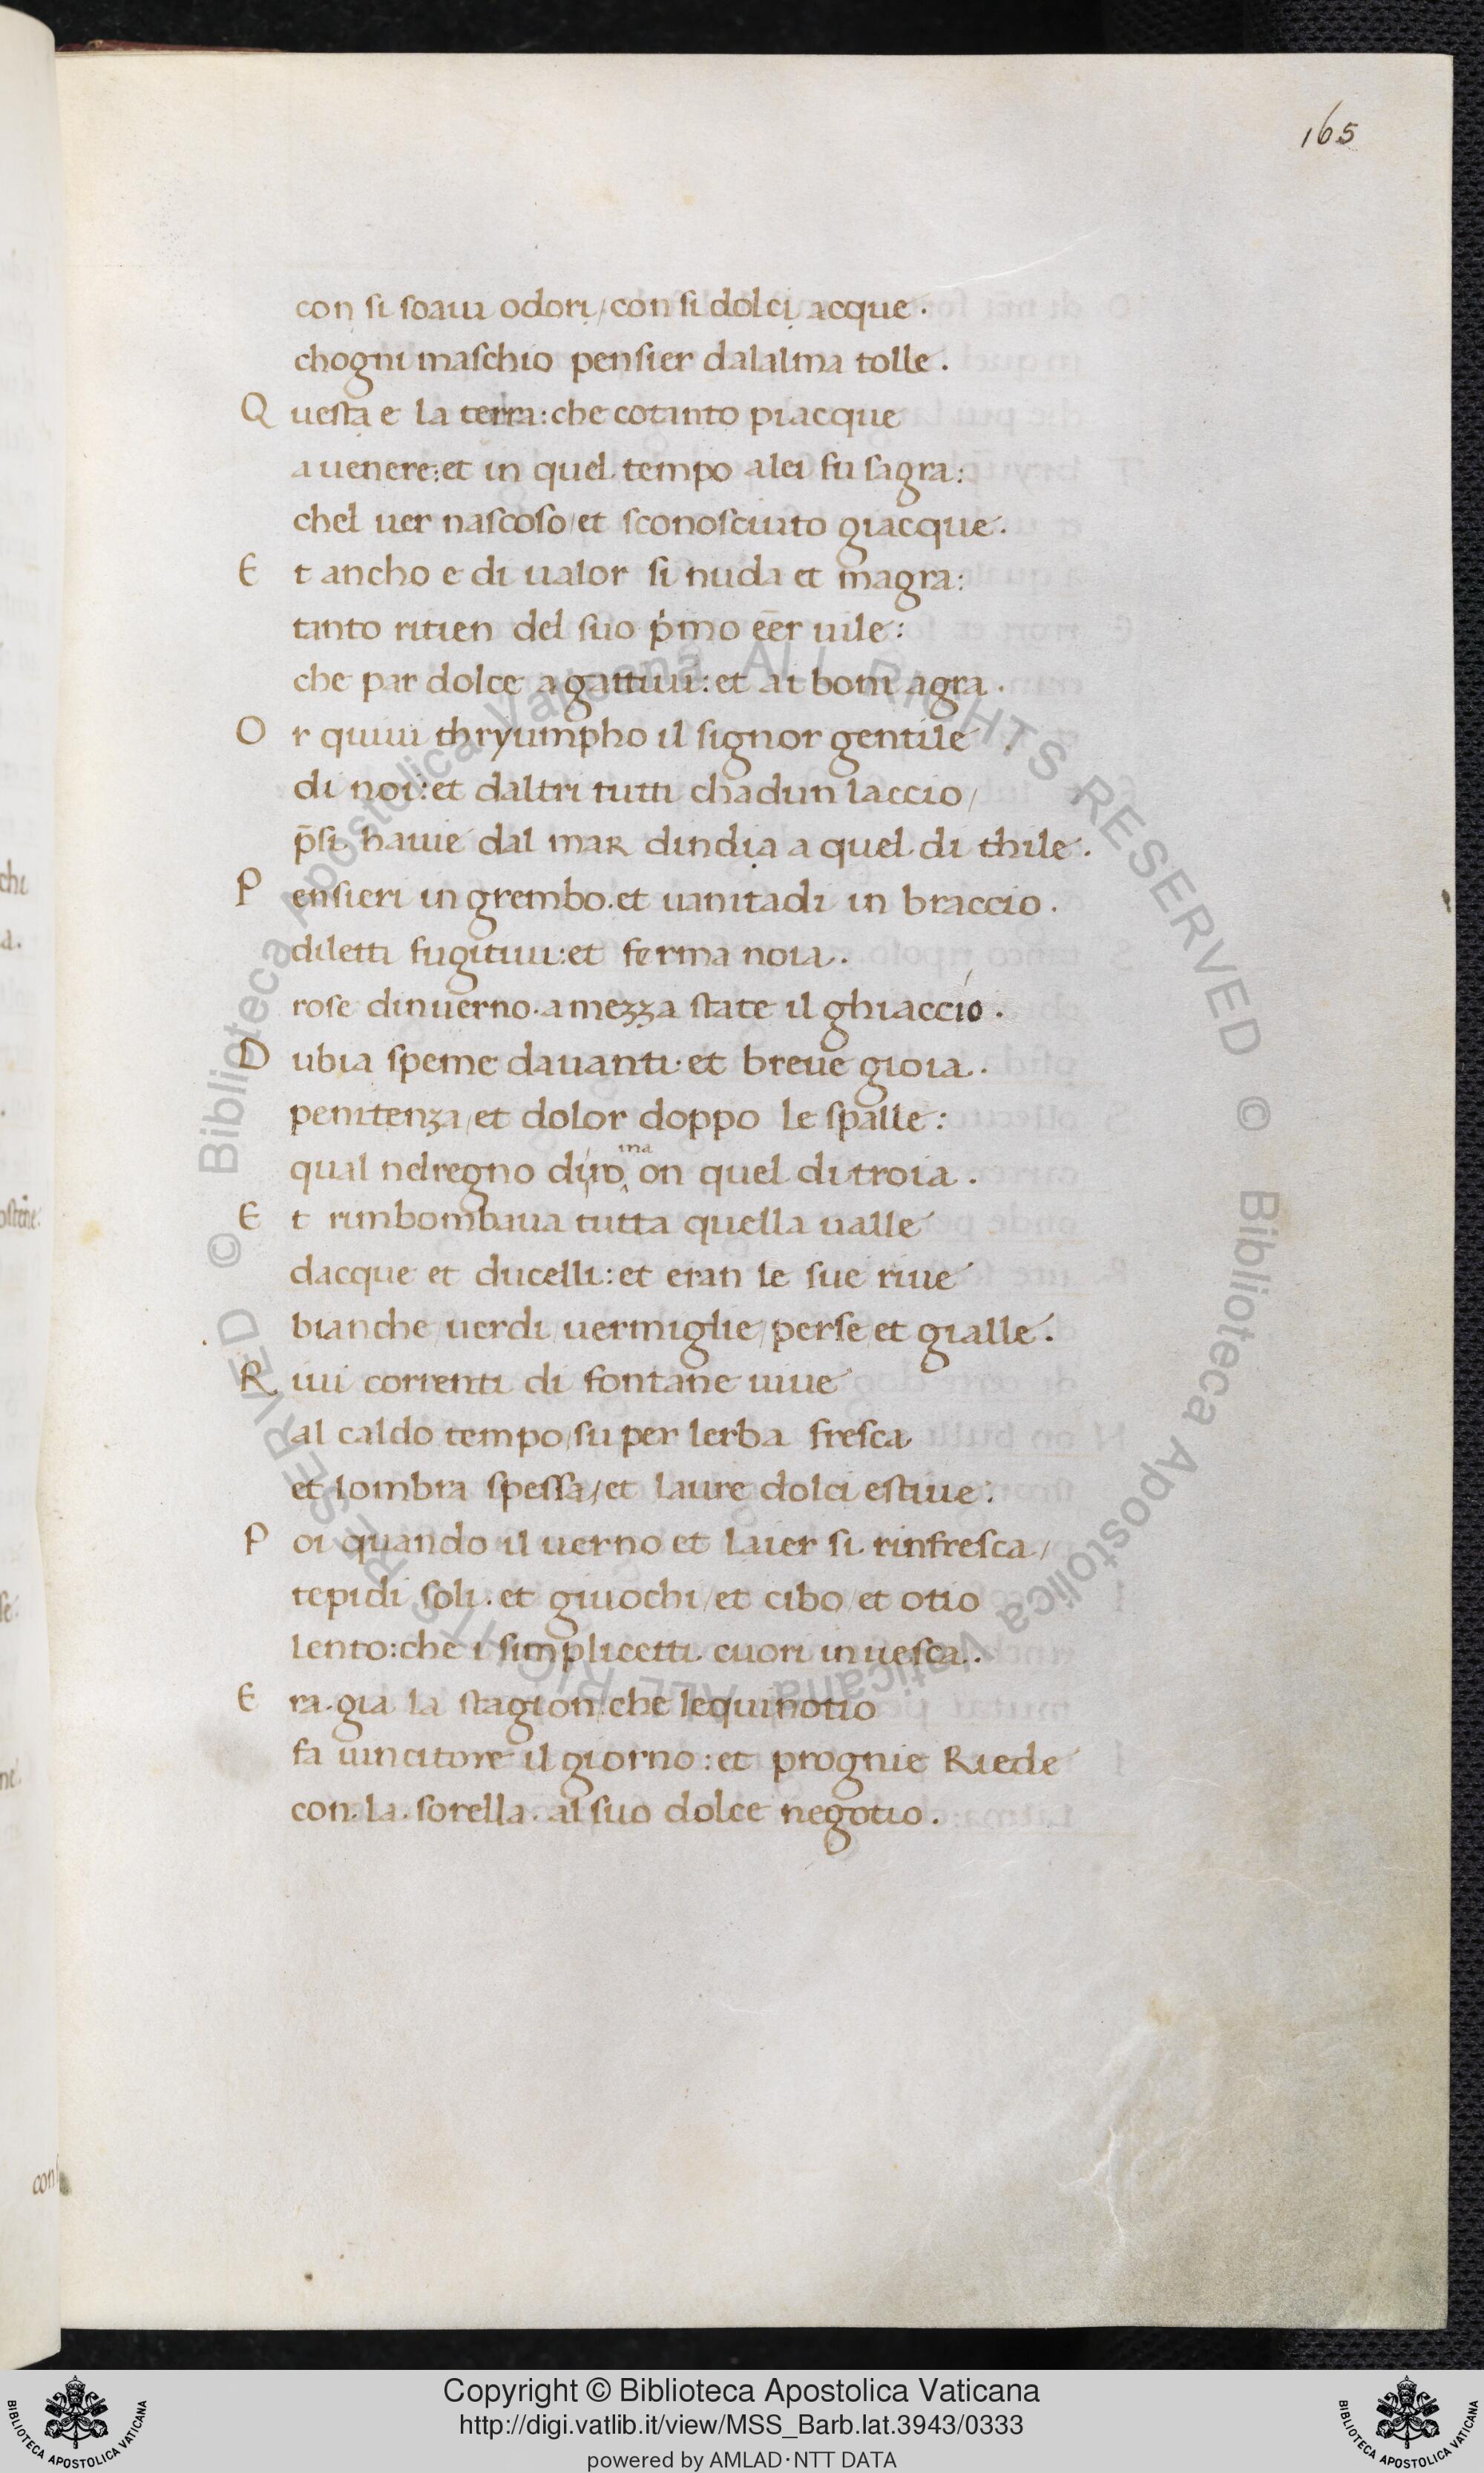 165
con si soaui odori/con si dolci acque.
chogni maschio pensier dalalma tolle.
Questa e la terra: che cotinto piacque
a uenere: et in quel tempo alei fu sagra:
chel uer nascoso/et sconosciuto giacque.
Et ancho e di ualor si nuda et magra:
tanto ritien del suo p̍mo eēr uile:
che par dolce a gattiui: et ai boni agra.
Or quiui thryumpho il signor gentile
di noi: et daltri tutti chadun laccio/
p̄si hauie dal mar dindia a quel di thile.
Pensieri in grembo. et uanitadi in braccio.
diletti fugitiui: et ferma noia.
rose dinuerno. a mezza state il ghiaccio.
Dubia speme dauanti. et breue gioia.
penitenza/et dolor doppo le spalle:
ma
qual nel regno on quel di troia.
Et rimbombaua tutta quella ualle
dacque et ducelli: et eran le sue riue
bianche/uerdi/uermiglie/perse/et gialle.
Riui correnti di fontane uiue
al caldo tempo/su per lerba fresca
et lombra spessa/et laure dolci estiue:
Poi quando il uerno et laier si rinfresca/
tepidi soli. et giuochi/et cibo/et otio
lento: che i simplicetti cuori inuesca.
Era gia la stagion: che lequinotio
fa uincitore il giorno: et prognie Riede
con la sorella. al suo dolce negotio.
© Biblioteca Apostolica Vaticana ALL RIGHTS RESERVED © Biblioteca Apostolica Vaticana ALL RIGHTS RESERVED
Copyright © Biblioteca Apostolica Vaticana
http://digi.vatlib.it/view/MSS_Barb.lat.3943/0333
powered by AMLAD·NTT DATA
BIBLIOTECA APOSTOLICA VATICANA
BIBLIOTECA APOSTOLICA VATICANA